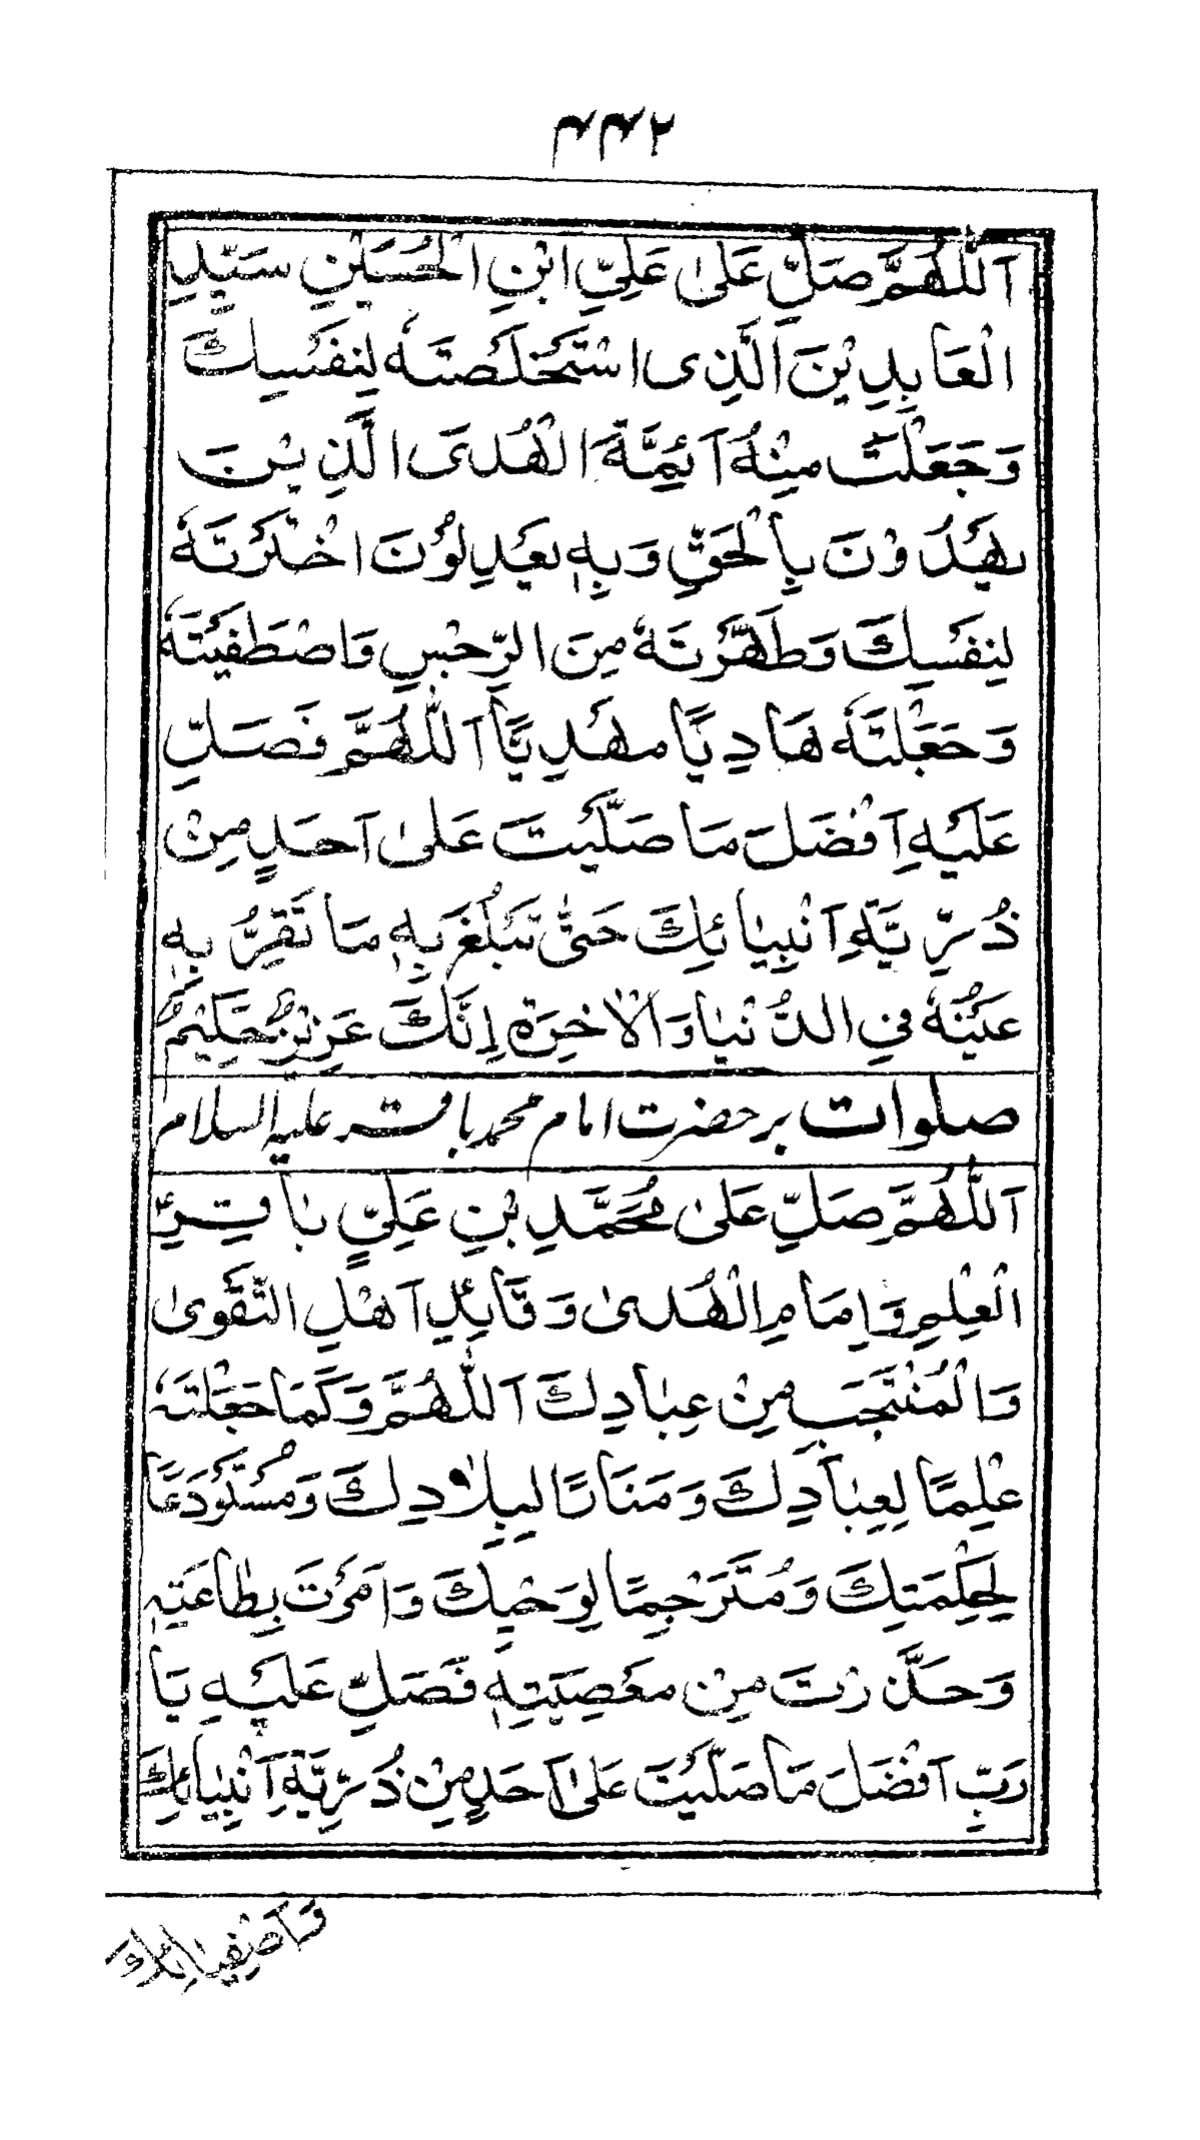 ۴۴۲
اَللّٰهُمَّ صَلِّ عَلىٰ عَلِيِّ ابْنِ الْحُسَيْنِ سَيِّدِ
الْعَابِدِيْنَ الَّذِى اسْتَخْلَصْتَهٗ لِنَفْسِكَ
وَجَعَلْتَ مِنْهُ اَئِمَّةَ الْهُدَى الَّذِيْنَ
يَهْدُوْنَ بِالْحَقِّ وَبِهٖ يَعْدِلُوْنَ اخْتَرْتَهٗ
لِنَفْسِكَ وَطَهَّرْتَهٗ مِنَ الرِّجْسِ وَاصْطَفَيْتَهٗ
وَجَعَلْتَهٗ هَادِيًا مَهْدِيًّا اَللّٰهُمَّ فَصَلِّ
عَلَيْهِ اَفْضَلَ مَا صَلَّيْتَ عَلىٰ اَحَدٍ مِنْ
ذُرِّيَّةِ اَنْبِيٰائِكَ حَتّٰى تَبْلُغَ بِهٖ مَا تَقِرُّ بِهٖ
عَيْنُهٗ فِي الدُّنْيٰا وَالْاٰخِرَةِ اِنَّكَ عَزِيْزٌ حَكِيْمٌ
صلوات بر حضرت امام محمد باقر علیہ السلام
اَللّٰهُمَّ صَلِّ عَلىٰ مُحَمَّدِ بْنِ عَلِيٍّ بٰاقِرِ
الْعِلْمِ وَاِمَامِ الْهُدىٰ وَقَائِدِ اَهْلِ التَّقْوىٰ
وَالْمُنْتَجَبِ مِنْ عِبٰادِكَ اَللّٰهُمَّ وَكَمَا جَعَلْتَهٗ
عَلَمًا لِعِبٰادِكَ وَمَنَارًا لِبِلَادِكَ وَمُسْتَوْدَعًا
لِحِكْمَتِكَ وَمُتَرْجِمًا لِوَحْيِكَ وَاَمَرْتَ بِطٰاعَتِهٖ
وَحَذَّرْتَ مِنْ مَعْصِيَتِهٖ فَصَلِّ عَلَيْهِ يَا
رَبِّ اَفْضَلَ مَا صَلَّيْتَ عَلىٰ اَحَدٍ مِنْ ذُرِّيَّةِ اَنْبِيٰائِكَ
وَاَصْفِيٰائِكَ